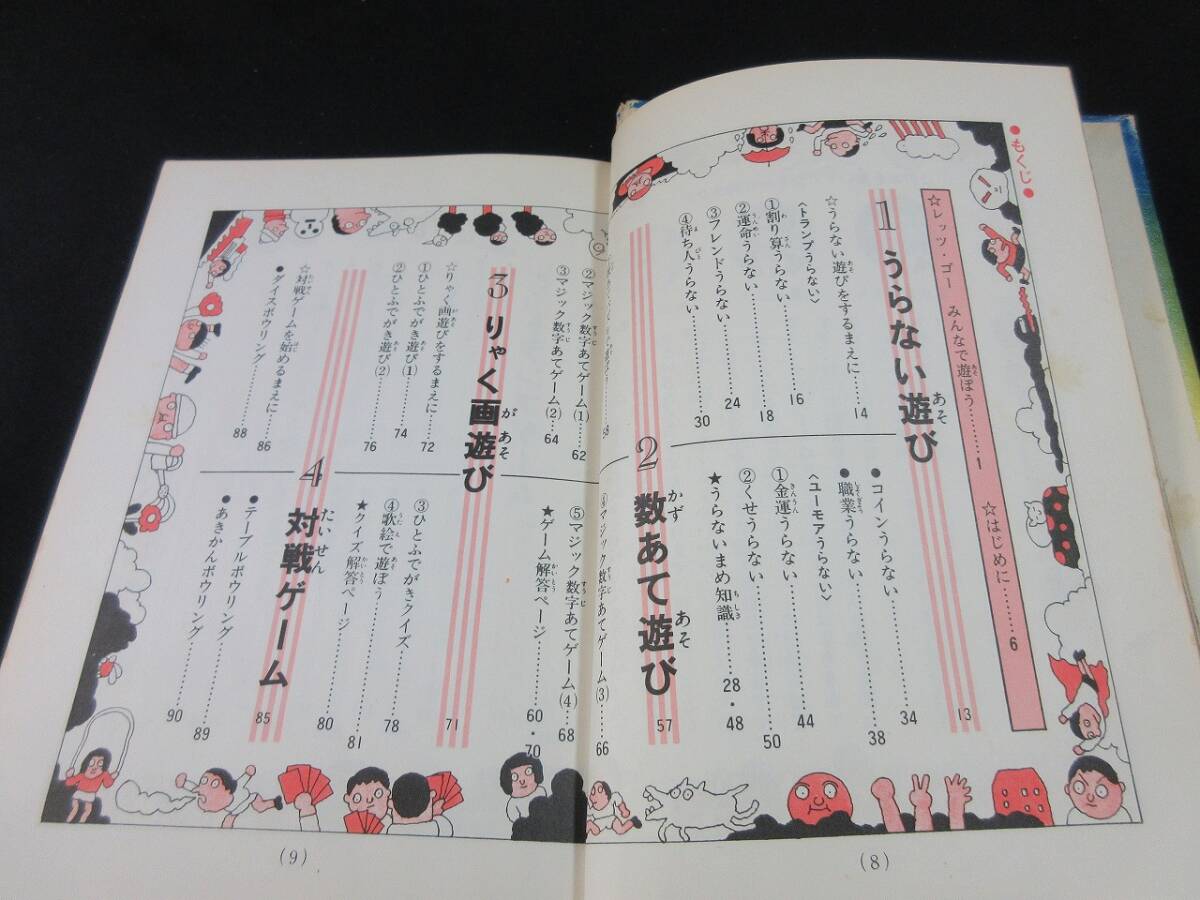 ●もくじ●
☆レッツ・ゴー みんなで遊ぼう……1 ☆はじめに……6
1 うらない遊び 13
☆うらない遊びをするまえに……14
〈トランプうらない〉
①割り算うらない……16
②運命うらない……18
③フレンドうらない……24
④待ち人うらない……30
●コインうらない……34
●職業うらない……38
〈ユーモアうらない〉
①金運うらない……44
②くせうらない……50
★うらないまめ知識……28・48
2 数あて遊び 57
(8)
②マジック数字あてゲーム(1)……62
③マジック数字あてゲーム(2)……64
④マジック数字あてゲーム(3)……66
⑤マジック数字あてゲーム(4)……68
★ゲーム解答ページ……60・70
3 りゃく画遊び 71
☆りゃく画遊びをするまえに……72
①ひとふでがき遊び(1)……74
②ひとふでがき遊び(2)……76
③ひとふでがきクイズ……78
④歌絵で遊ぼう……81
★クイズ解答ページ……80
4 対戦ゲーム 85
☆対戦ゲームを始めるまえに……86
●ダイスボウリング……88
●テーブルボウリング……89
●あきかんボウリング……90
(9)